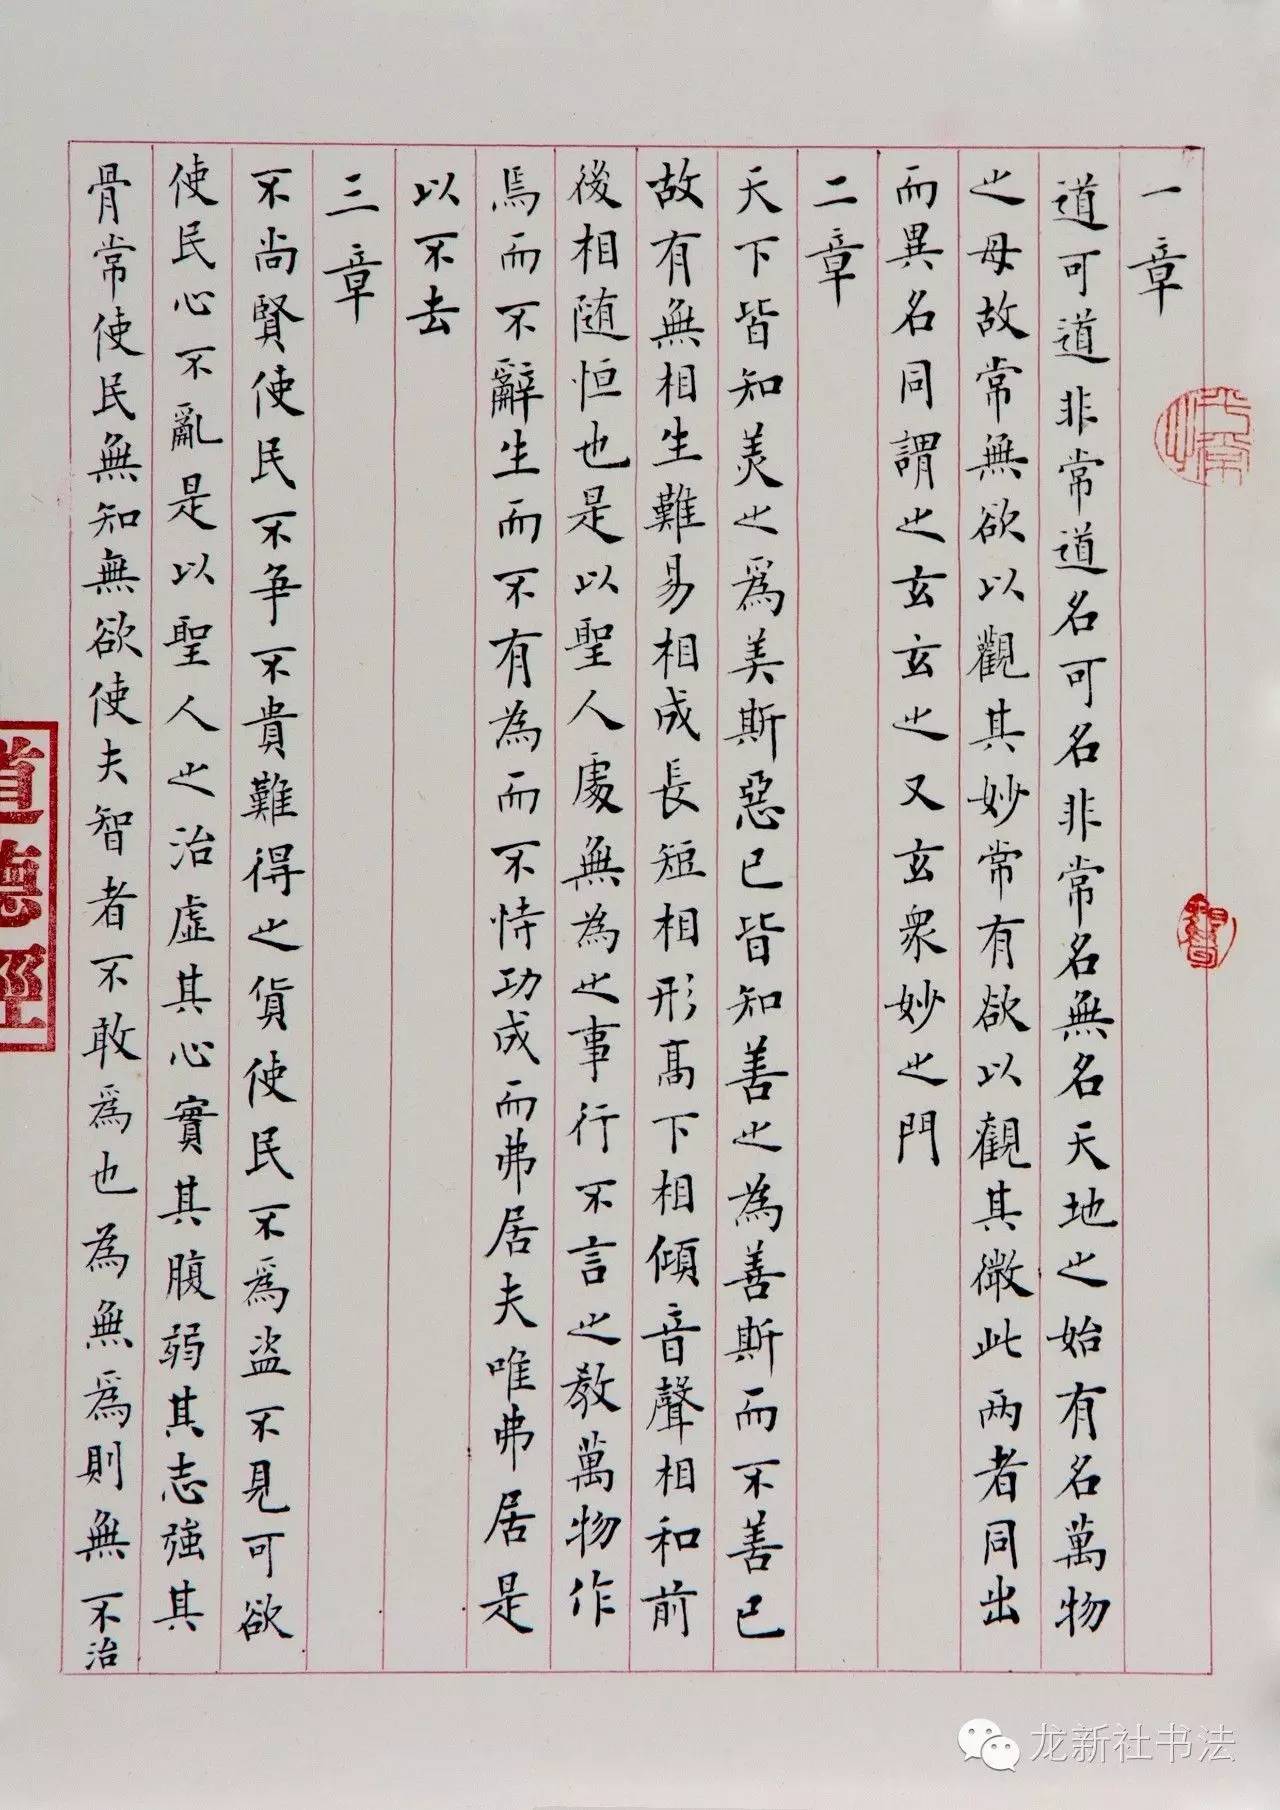 一章
道可道非常道名可名非常名無名天地之始有名萬物
之母故常無欲以觀其妙常有欲以觀其徼此两者同出
而異名同謂之玄玄之又玄衆妙之門
二章
天下皆知美之爲美斯惡已皆知善之為善斯而不善已
故有無相生難易相成長短相形高下相傾音聲相和前
後相随恒也是以聖人處無為之事行不言之教萬物作
焉而不辭生而不有為而不恃功成而弗居夫唯弗居是
以不去
三章
不尚賢使民不争不貴難得之貨使民不爲盗不見可欲
使民心不亂是以聖人之治虛其心實其腹弱其志強其
骨常使民無知無欲使夫智者不敢爲也為無爲則無不治
道德經
龙新社书法